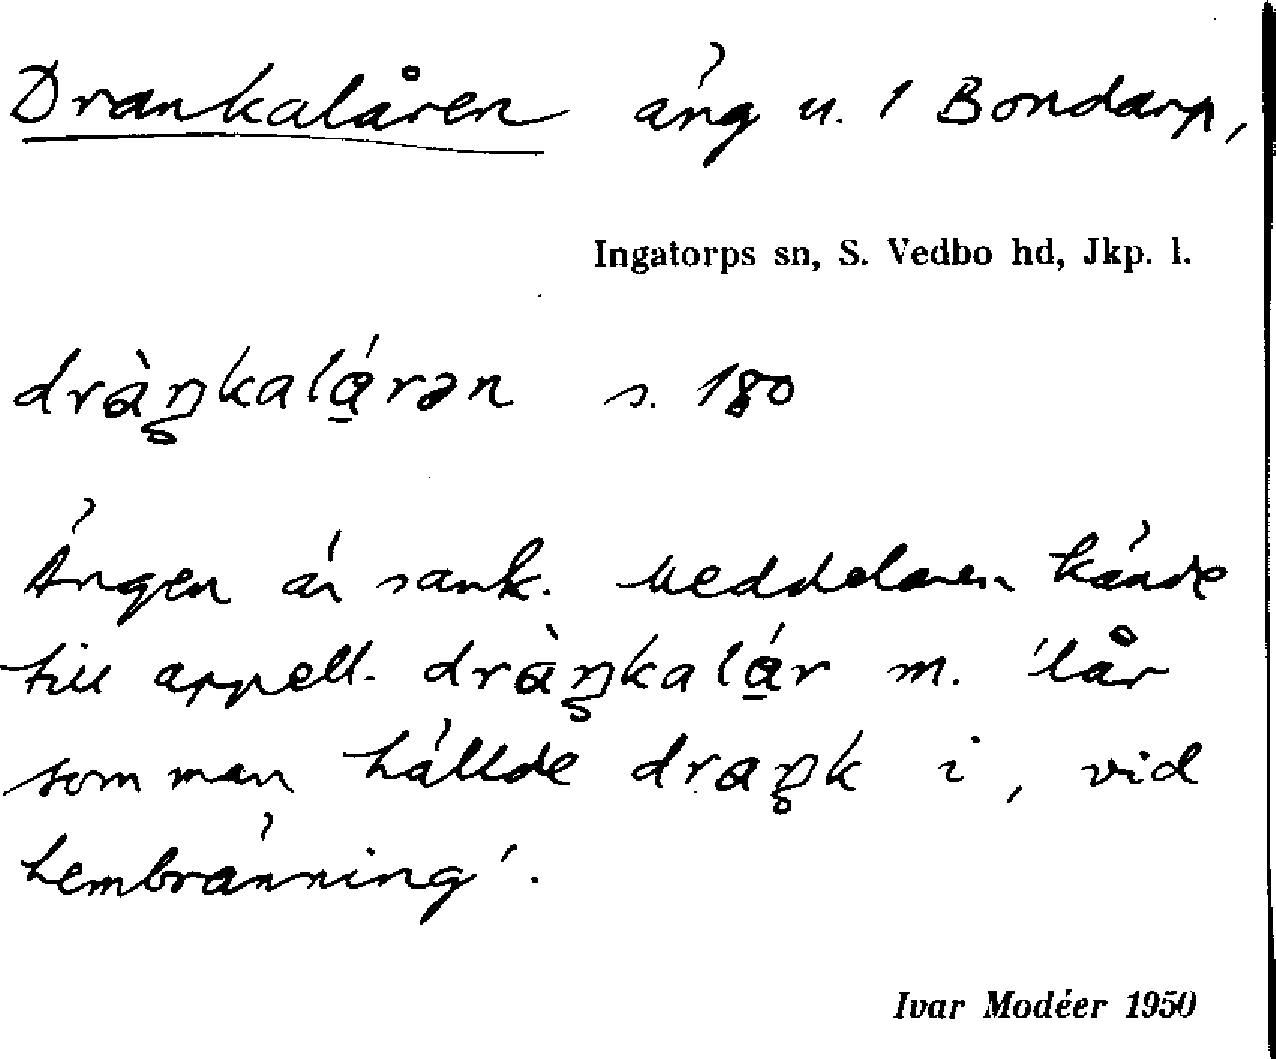 Drankalåren äng u. 1 Bondarp,
Ingatorps sn, S. Vedbo hd, Jkp. l.
dràŋkalá̱rən s. 180
Ängen är sank. Meddelaren kände
till appell. dràŋkalá̱r m. 'lår
som man hällde draŋk i, vid
hembränning'.
Ivar Modéer 1950